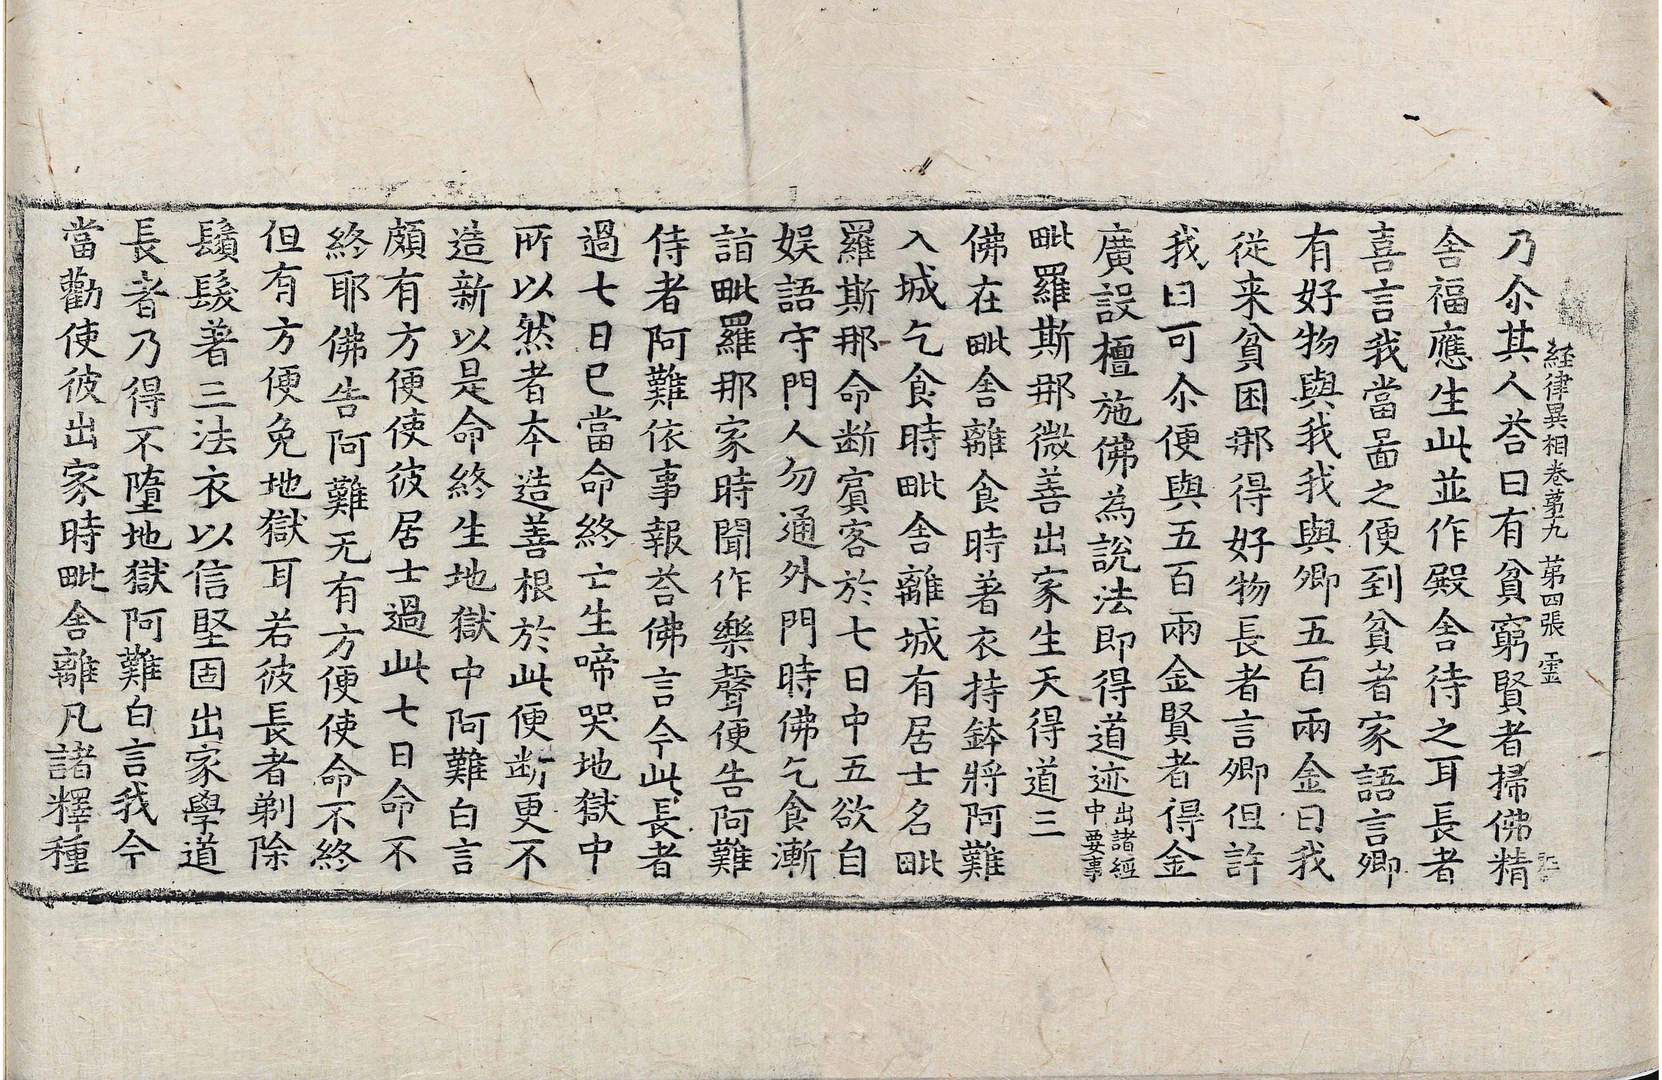 経律異相卷苐九 苐四張 霊
乃尒其人荅曰有貧窮賢者掃佛精
舎福應生此並作殿舎待之耳長者
喜言我當啚之便到貧者家語言卿
有好物與我我與卿五百兩金曰我
從来貧困那得好物長者言卿但許
我曰可尒便與五百兩金賢者得金
廣設檀施佛為說法即得道迹出諸經中要事
毗羅斯那微善出家生天得道三
佛在毗舎離食時著衣持鉢將阿難
入城乞食時毗舎離城有居士名毗
羅斯那命断賔客於七日中五欲自
娛語守門人勿通外門時佛乞食漸
詣毗羅那家時聞作樂聲便告阿難
侍者阿難依事報荅佛言今此長者
過七日已當命終亡生啼哭地獄中
所以然者本造善根於此便断更不
造新以是命終生地獄中阿難白言
頗有方便使彼居士過此七日命不
終耶佛告阿難无有方便使命不終
但有方便免地獄耳若彼長者剃除
鬚髮著三法衣以信堅固出家學道
長者乃得不墮地獄阿難白言我今
當勸使彼出家時毗舎離凡諸釋種